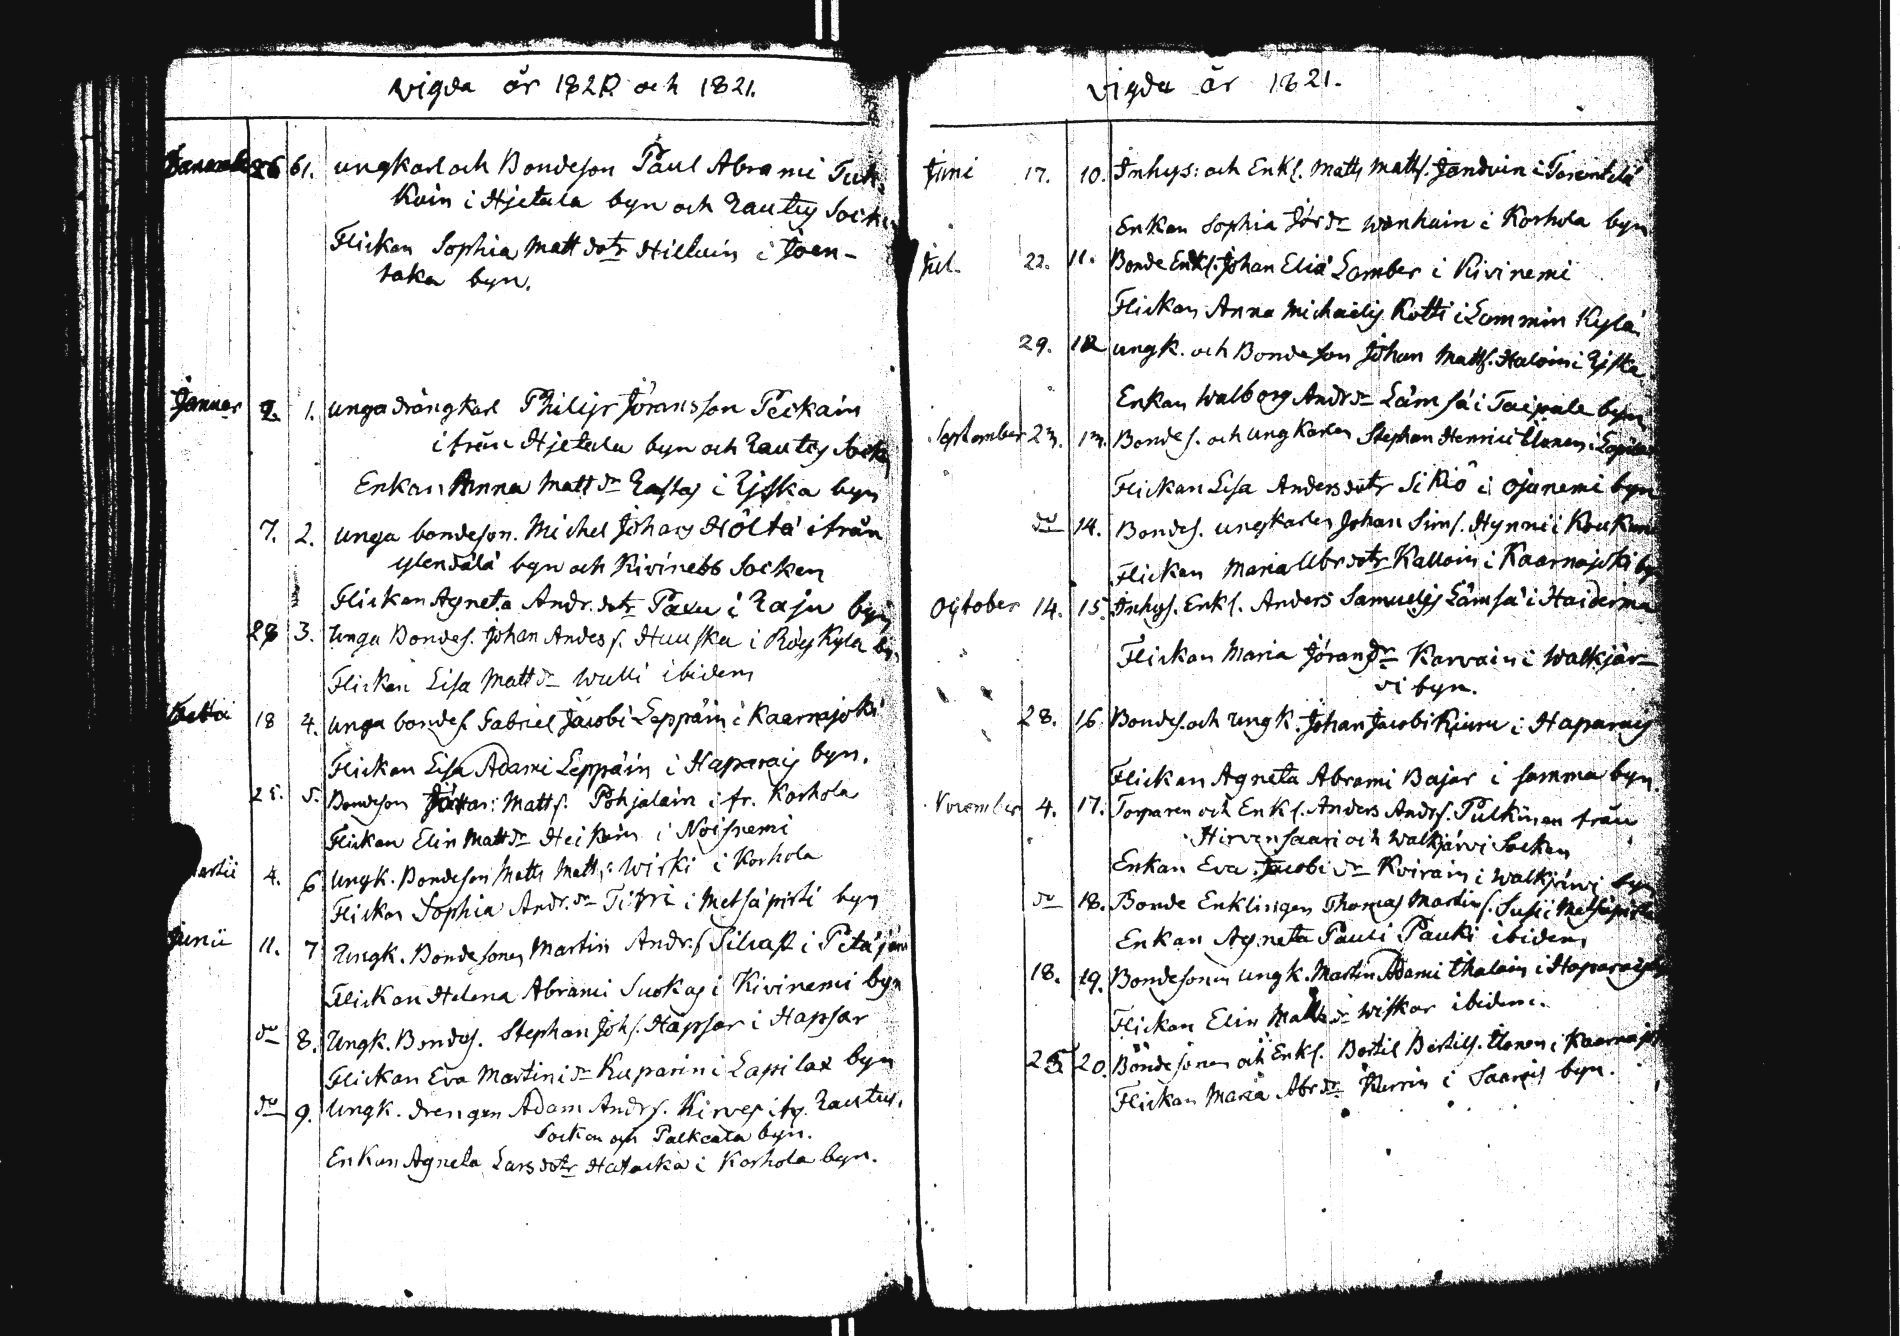 vigda år 1820 och 1821.
26 61. ungkarl och Bondeson Paul Abrami
Koin i Hjetala byn och Rautus Socken
Flickan Sophia Matt dotr Hilluin i Joen-
taka byn.
Januar 2. 1. unga drängkarl Philip Jöransson Peckain
ifrån Hjetala byn och Rautus Sock
Enkan Anna Matt dr Rastas i Rjska byn
7. 2. unga bondeson. Michel Johans Höltä ifrån
ylendälä byn och Kivinebb Socken
Flickan Agneta Andr. dotr Paxu i Raju byn
28 3. Unga Bondes. Johan Anders s. Huuska i Röykylä by
Flickan Lisa Matt dr Wulli ibidem
18 4. unga bondes. Gabriel Jacobi Leppäin i Kaarnajoki
Flickan Lisa Adami Leppäin i Haparais byn.
25. 5. Bondeson Matts. Pohjalain i fr. Korhola
Flickan Elin Matt dr Heikain i Noisnemi
Martii 4. 6 Ungk. Bondeson Matts Matts: Wirki i Korhola
Flickan Sophia Andr. dr Titri i Metsäpirti byn
Junii 11. 7 Ungk. Bondesonen Martin Andr. s. Silvast i Petäjär
Flickan Helena Abrami Suokas i Kivinemi byn
do 8. Ungk. Bondes. Stephan Joh s. Hapsar i Hapsar
Flickan Eva Martini dr Kuparin i Lapilax byn
do 9. Ungk. drengen Adam Andr s. Kirves Rautus.
Socken och Palkeala byn.
Enkan Agneta Lars dotr Hatacka i Korhola byn.
vigda år 1821.
Juni 17. 10. Inhys: och Enkl. Matts Matts. Jandvin i Torentilä
Enkan Sophia Jör dr Wanhain i Korhola byn
Jul. 22. 11. Bonde Enkl. Johan Eliä Lamber i Kivinemi
Flickan Anna Michaelis Kotti i Lammin Kylä
29. 12 ungk. och Bondeson Johan Matts. Haloin i Rjska
Enkan Walborg Andr dr Lämsä i Taipale byn
September 23. 13. Bondes. och ungkarlen Stephan Henrici Ukonen i Lapilax
Flickan Lisa Anders dotr Sikiö i Ojanemi byn
do 14. Bondes. ungkarlen Johan Sims. Hynni i Koukun
Flickan Maria Abr dotr Kalloin i Kaarnajoki by
October 14. 15 Inhys. Enkl. Anders Samuelis Lämsä i Haiderma
Flickan Maria Jöran dr Karvain i Walkjär-
vi byn.
28. 16. Bondes. och ungk. Johan Jacobi Kiuru i Haparais
Flickan Agneta Abrami Bajar i samma byn.
November 4. 17. Torparen och Enkl. Anders Andrs. Pulkinen från
Hirvensaari och Walkjärvi Socken
Enkan Eva Jacobi dr Kvirain i Walkjärvi byn
do 18. Bonde Enklingen Thomas Martins. Susii Metsäpirti
Enkan Agneta Pauli Pauki ibidem
18. 19. Bondesonen ungk. Martin Adami Ihalain i Haparais
Flickan Elin Matts dr Wiskar ibidem.
25 20. Bondesonen och Enkl. Bertil Bertils. Ukonen i Kaarnajoki
Flickan Maria Abr dr i Saarois byn.